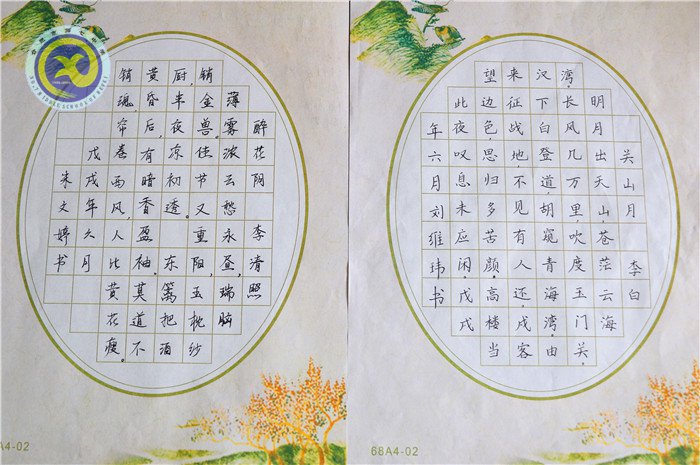 醉花阴 李清照
薄雾浓云愁永昼,瑞脑
销金兽。佳节又重阳,玉枕纱
厨,半夜凉初透。东篱把酒
黄昏后,有暗香盈袖。莫道不
销魂,帘卷西风,人比黄花瘦。
戊戌年久月
朱文婷书
关山月 李白
明月出天山,苍茫云海
湾,长风几万里,吹度玉门关。
汉下白登道,胡窥青海湾。由
来征战地,不见有人还。戍客
望边色,思归多苦颜。高楼当
此夜,叹息未应闲。戊戌
年六月刘维玮书
A4-02
68A4-02